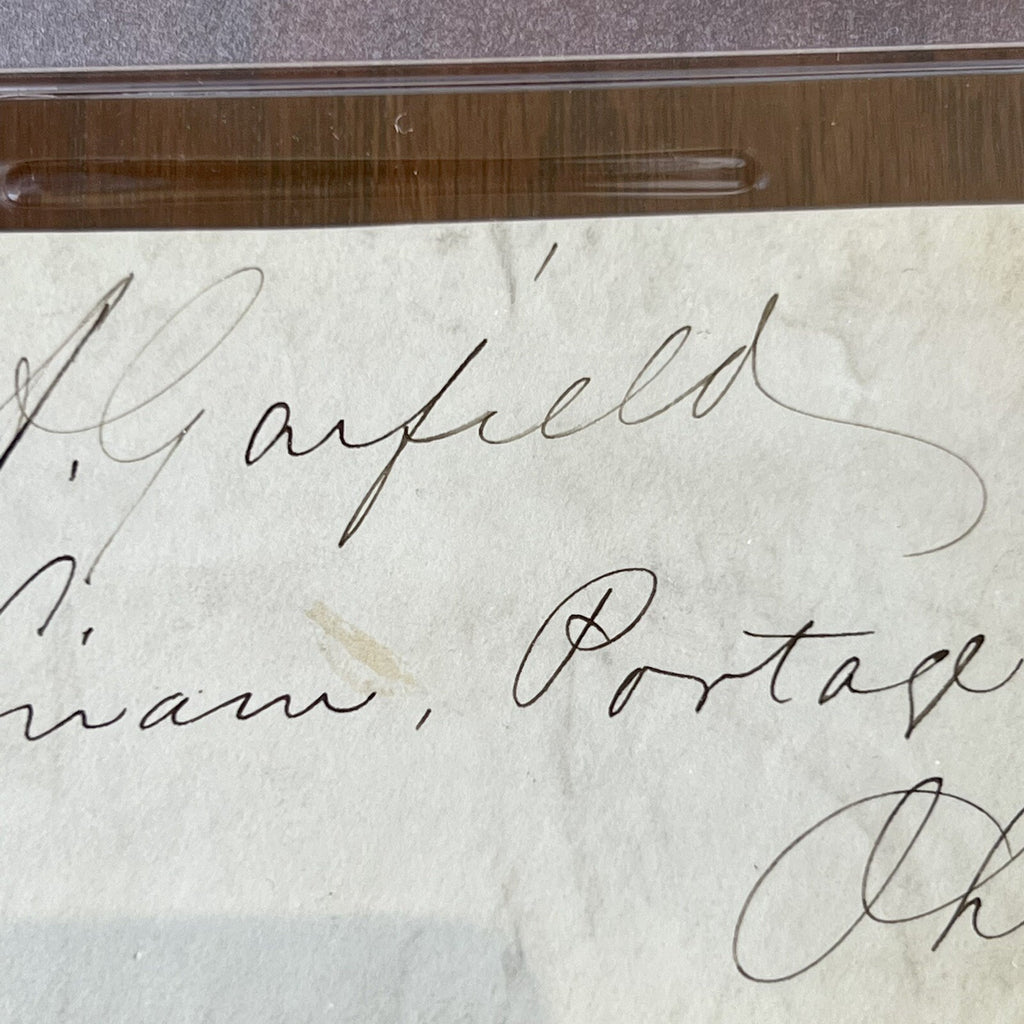 A. Garfield
iram, Portage
Oh